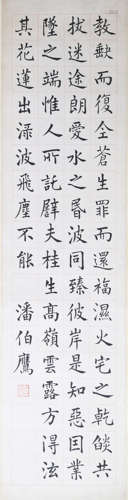 教缺而復全蒼生罪而還福濕火宅之乾燄共
拔迷途朗愛水之昏波同臻彼岸是知惡因業
墜之端惟人所託辟夫桂生高嶺雲露方得泫
其花蓮出淥波飛塵不能　潘伯鷹